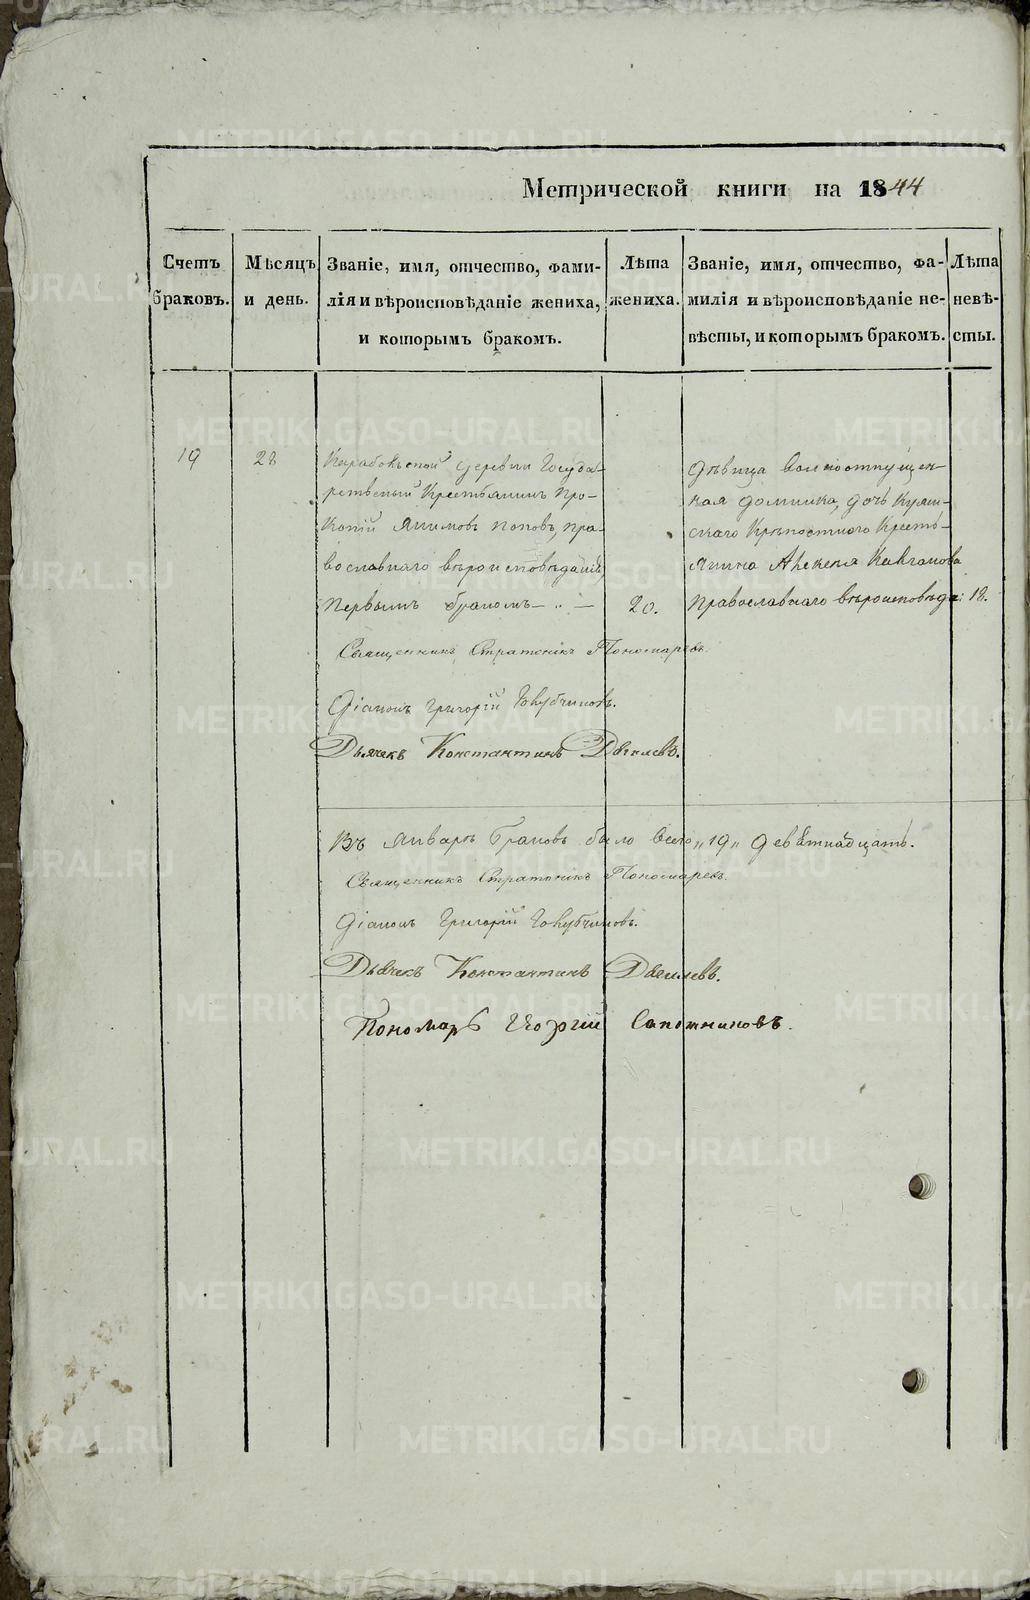 Метрической книги на 1844
Счетъ браковъ.
Мѣсяцъ и день.
Званіе, имя, отчество, фами-
лія и вѣроисповѣданіе жениха,
и которымъ бракомъ.
Лѣта жениха.
Званіе, имя, отчество, фа-
милія и вѣроисповѣданіе не-
вѣсты, и которымъ бракомъ.
Лѣта невѣ-
сты.
19
28
деревни Госуда-
рственный Крестьянинъ Про-
копій Якимовъ Поповъ, пра-
вославнаго вѣроисповѣданія,
Первымъ бракомъ — „ —
20.
Дѣвица вольноотпущен-
ная Домника, дочь
Крѣпостнаго Кресть-
янина Алексея
Православнаго вѣроисповѣда:
18.
Священникъ Стратоникъ Пономаревъ.
Діаконъ Григорій
Дьячекъ Константинъ
Въ Январѣ браковъ было всего „19„ девѣтнадцать.
Священникъ Стратоникъ Пономаревъ.
Діаконъ Григорій
Дьячекъ Константинъ
Пономарь Георгій Сапожниковъ.
METRIKI.GASO-URAL.RU